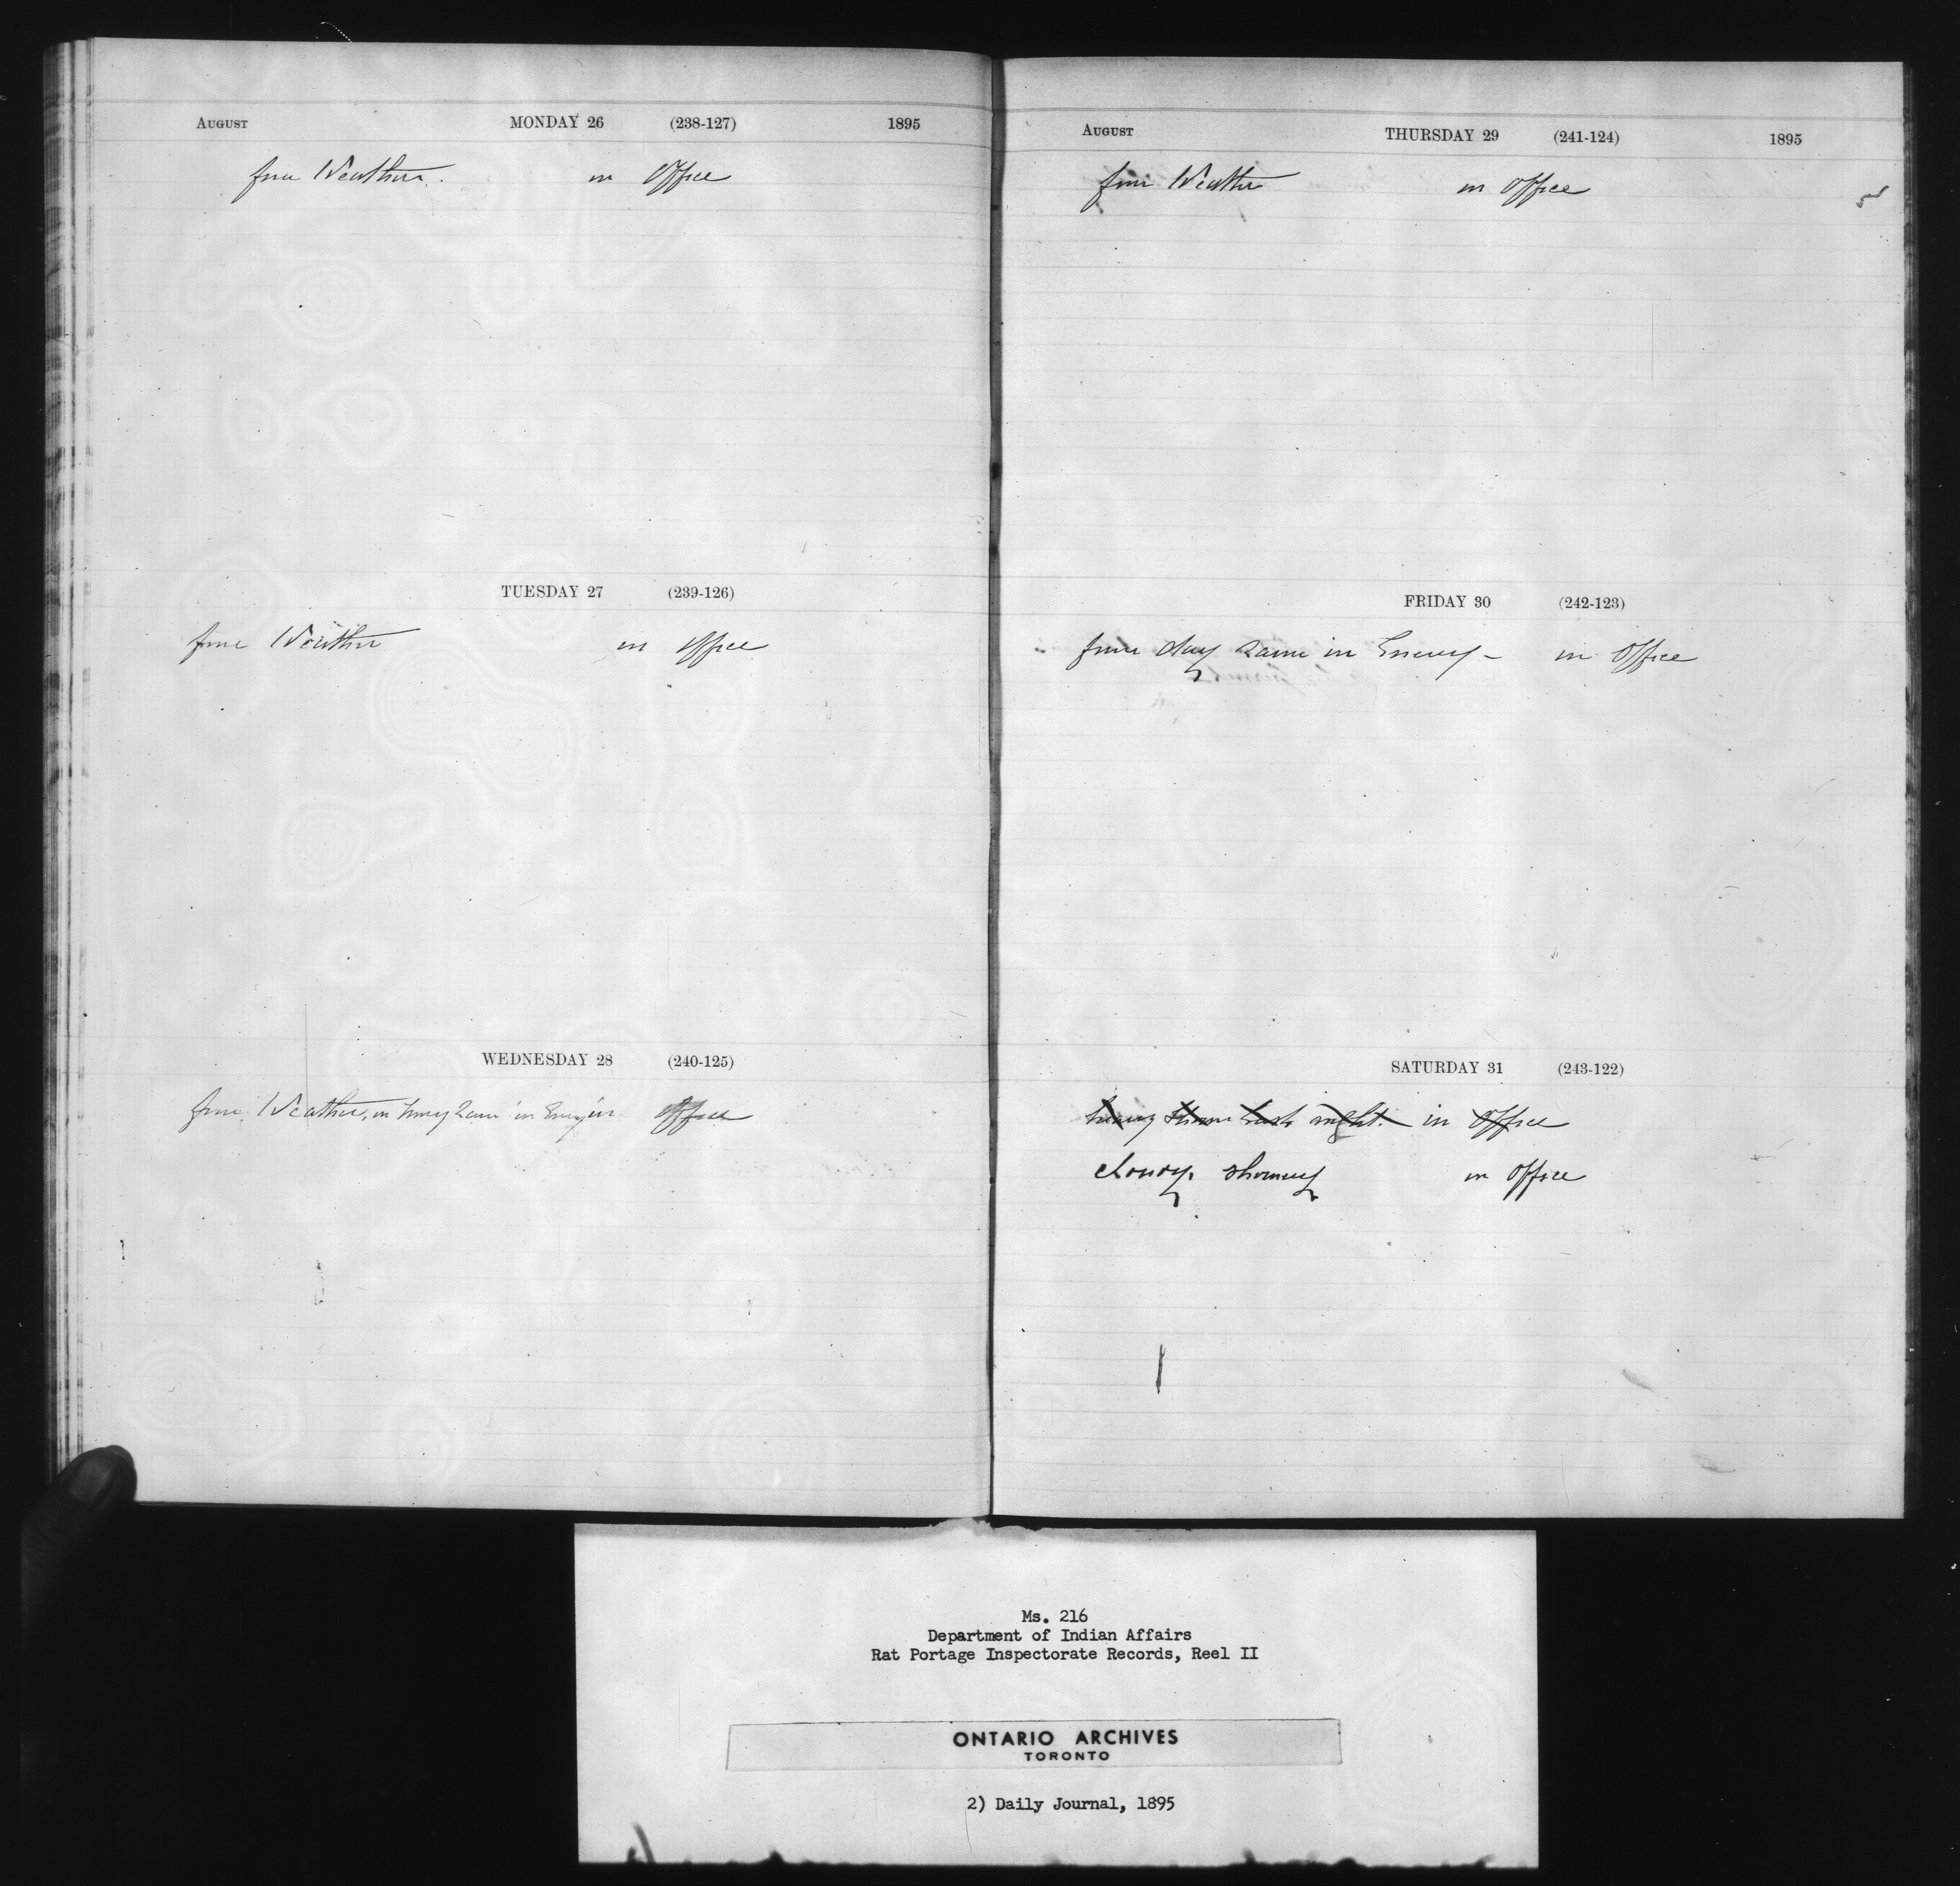 AUGUST MONDAY 26 (238-127) 1895
fine Weather. in Office
TUESDAY 27 (239-126)
fine Weather in Office
WEDNESDAY 28 (240-125)
fine Weather, in Office
AUGUST THURSDAY 29 (241-124) 1895
fine Weather in Office
FRIDAY 30 (242-123)
fine day Rain in Evening - in Office
SATURDAY 31 (243-122)
heavy last night. in Office
cloudy, showery in Office
Ms. 216
Department of Indian Affairs
Rat Portage Inspectorate Records, Reel II
ONTARIO ARCHIVES
TORONTO
2) Daily Journal, 1895